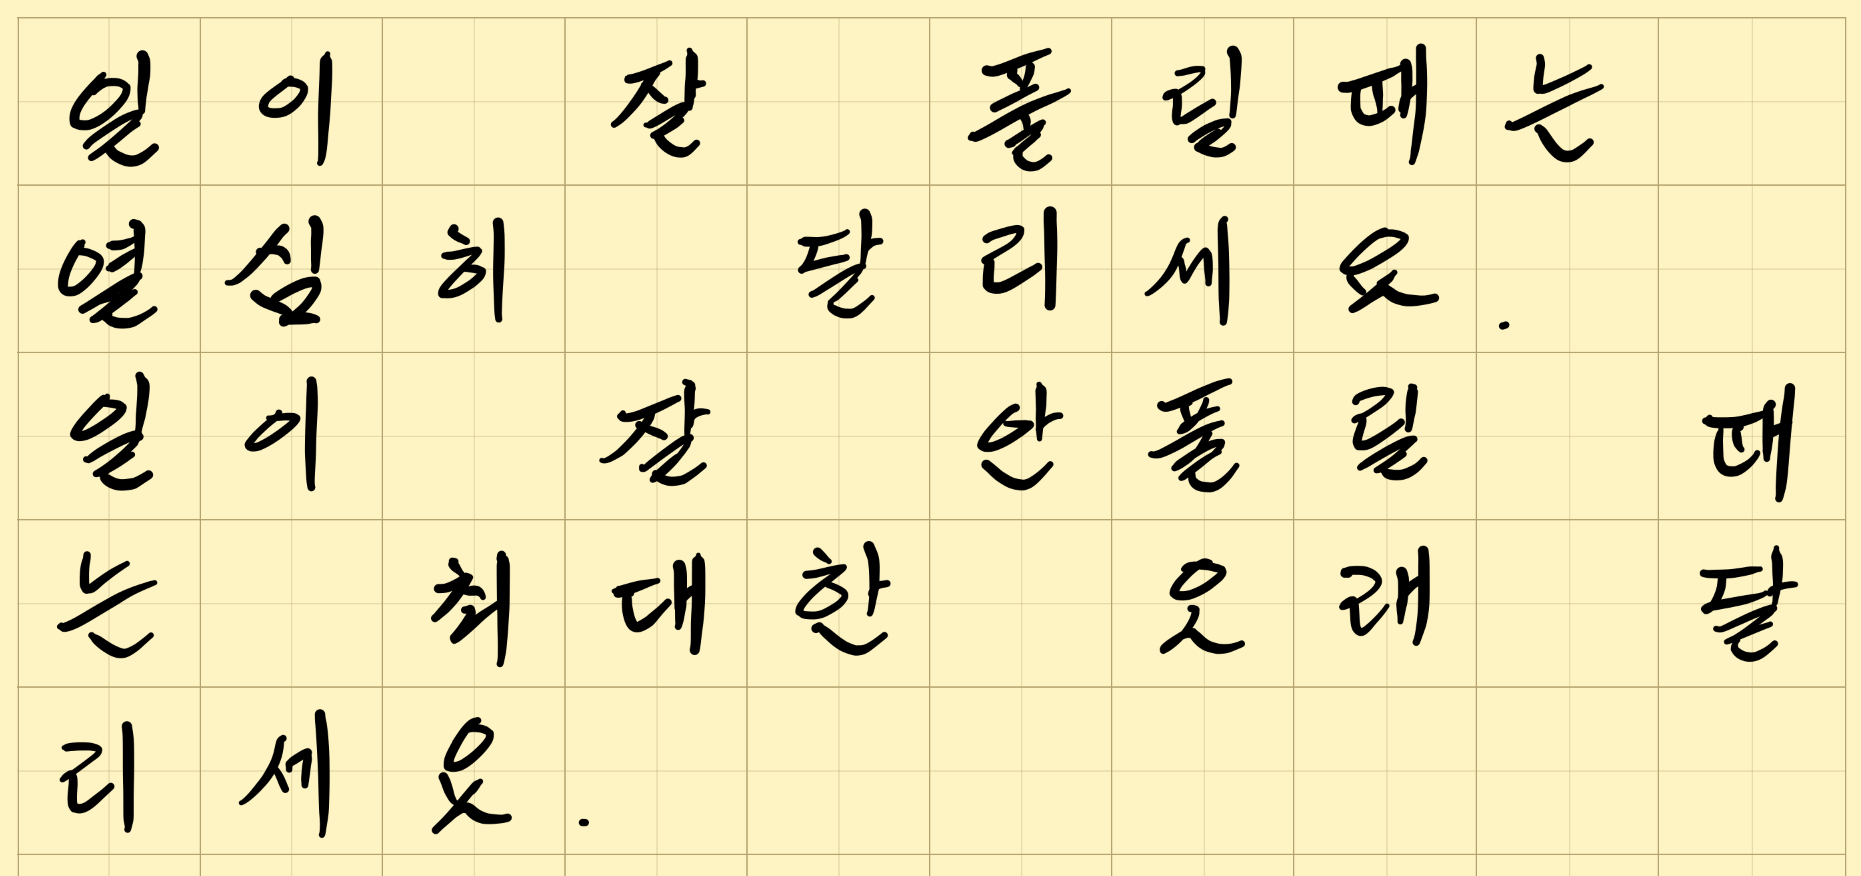 일이 잘 풀릴때는
열심히 달리세요.
일이 잘 안풀릴 때
는 최대한 오래 달
리세요.